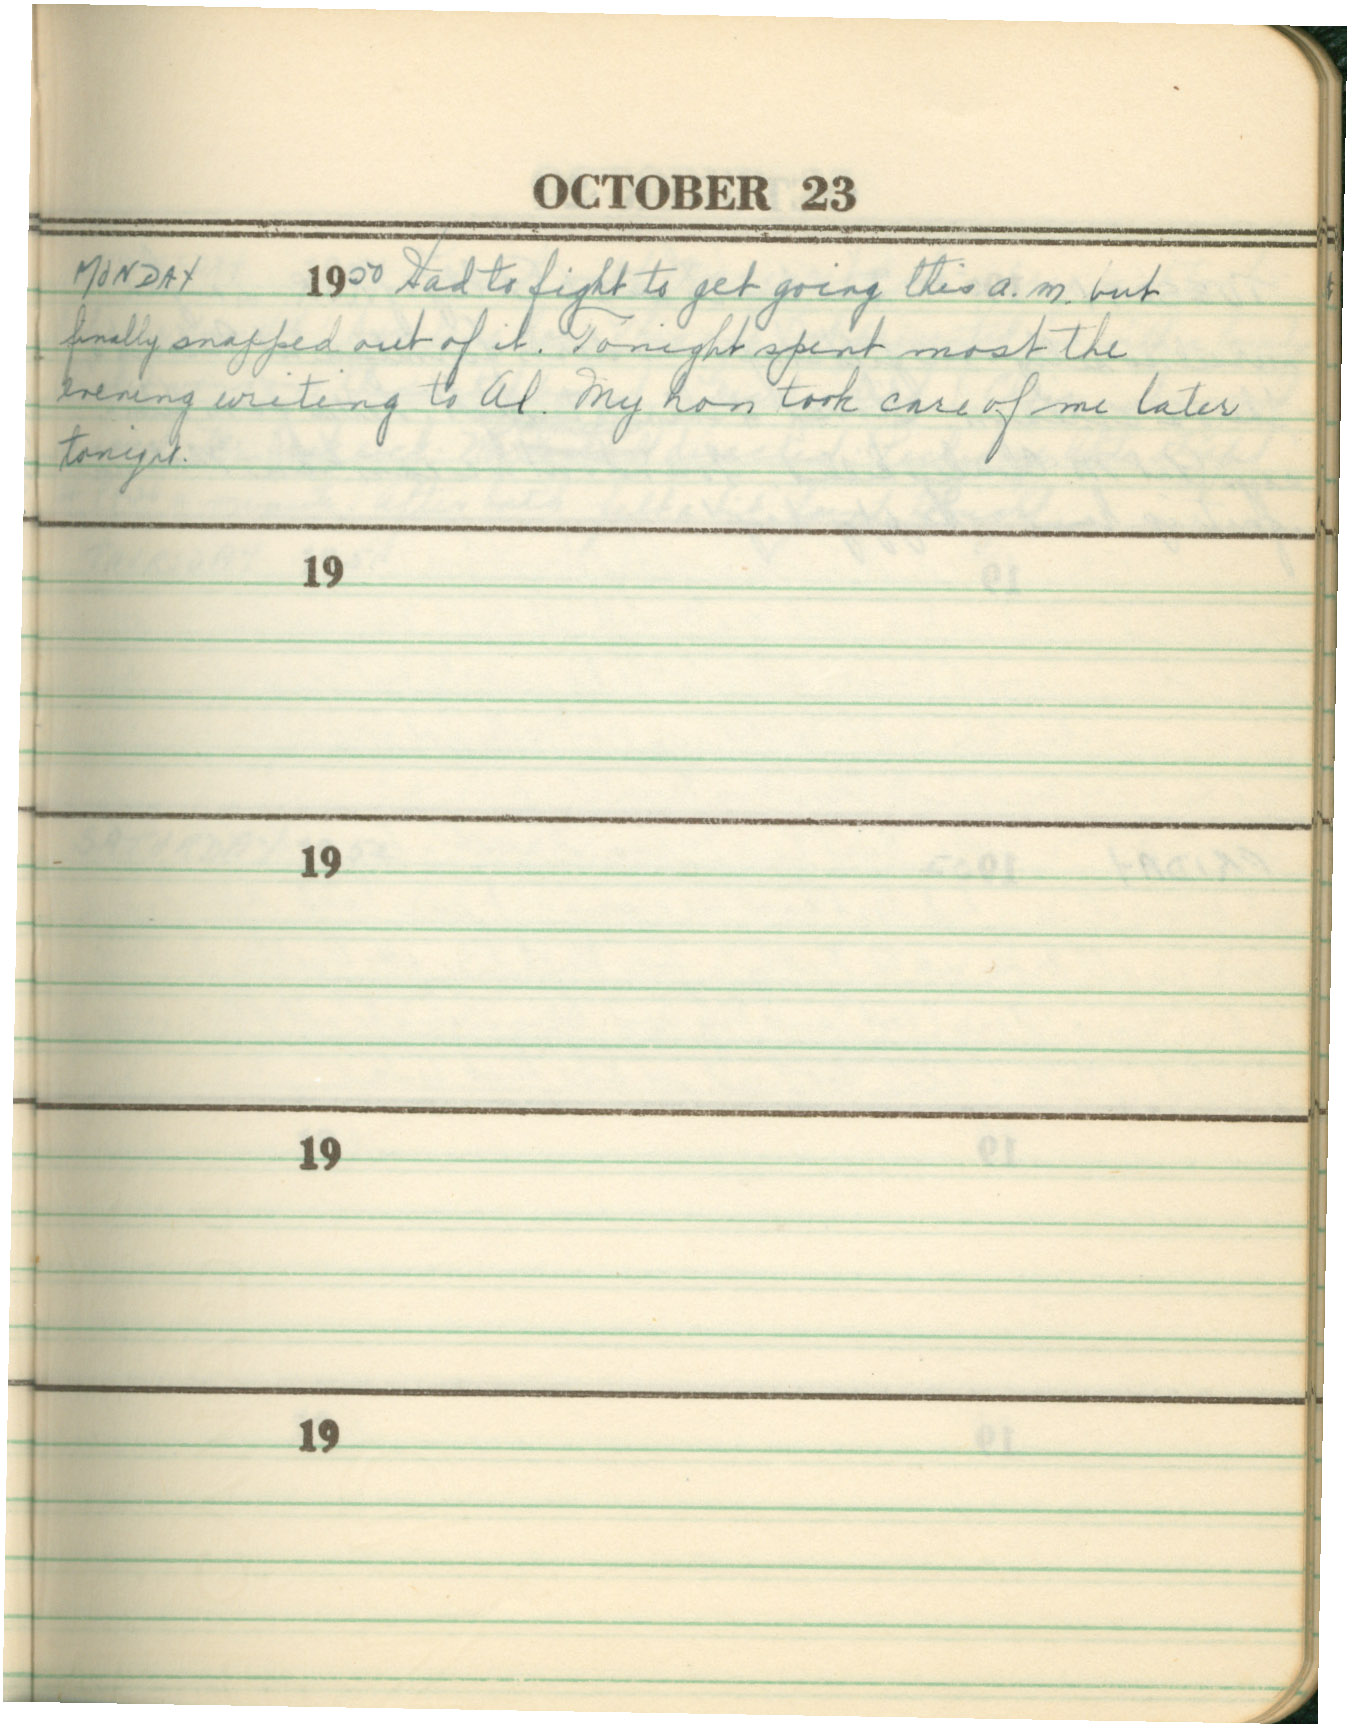 OCTOBER 23
MONDAY 1950 Had to fight to get going this a.m. but
finally snapped out of it. Tonight spent most the
evening writing to Al. My hon took care of me later
tonight.
19
19
19
19